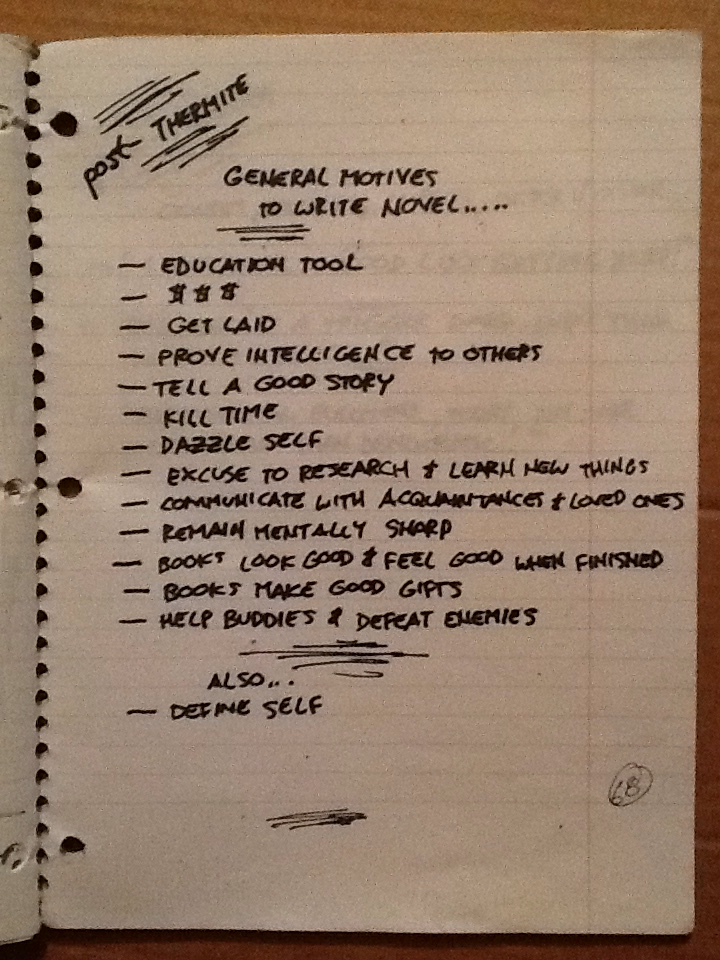 post- THERMITE
GENERAL MOTIVES
TO WRITE NOVEL.....
— EDUCATION TOOL
— $ $ $
— GET LAID
— PROVE INTELLIGENCE TO OTHERS
— TELL A GOOD STORY
— KILL TIME
— DAZZLE SELF
— EXCUSE TO RESEARCH & LEARN NEW THINGS
— COMMUNICATE WITH ACQUAINTANCES & LOVED ONES
— REMAIN MENTALLY SHARP
— BOOKS LOOK GOOD & FEEL GOOD WHEN FINISHED
— BOOKS MAKE GOOD GIFTS
— HELP BUDDIES & DEFEAT ENEMIES
ALSO...
— DEFINE SELF
68